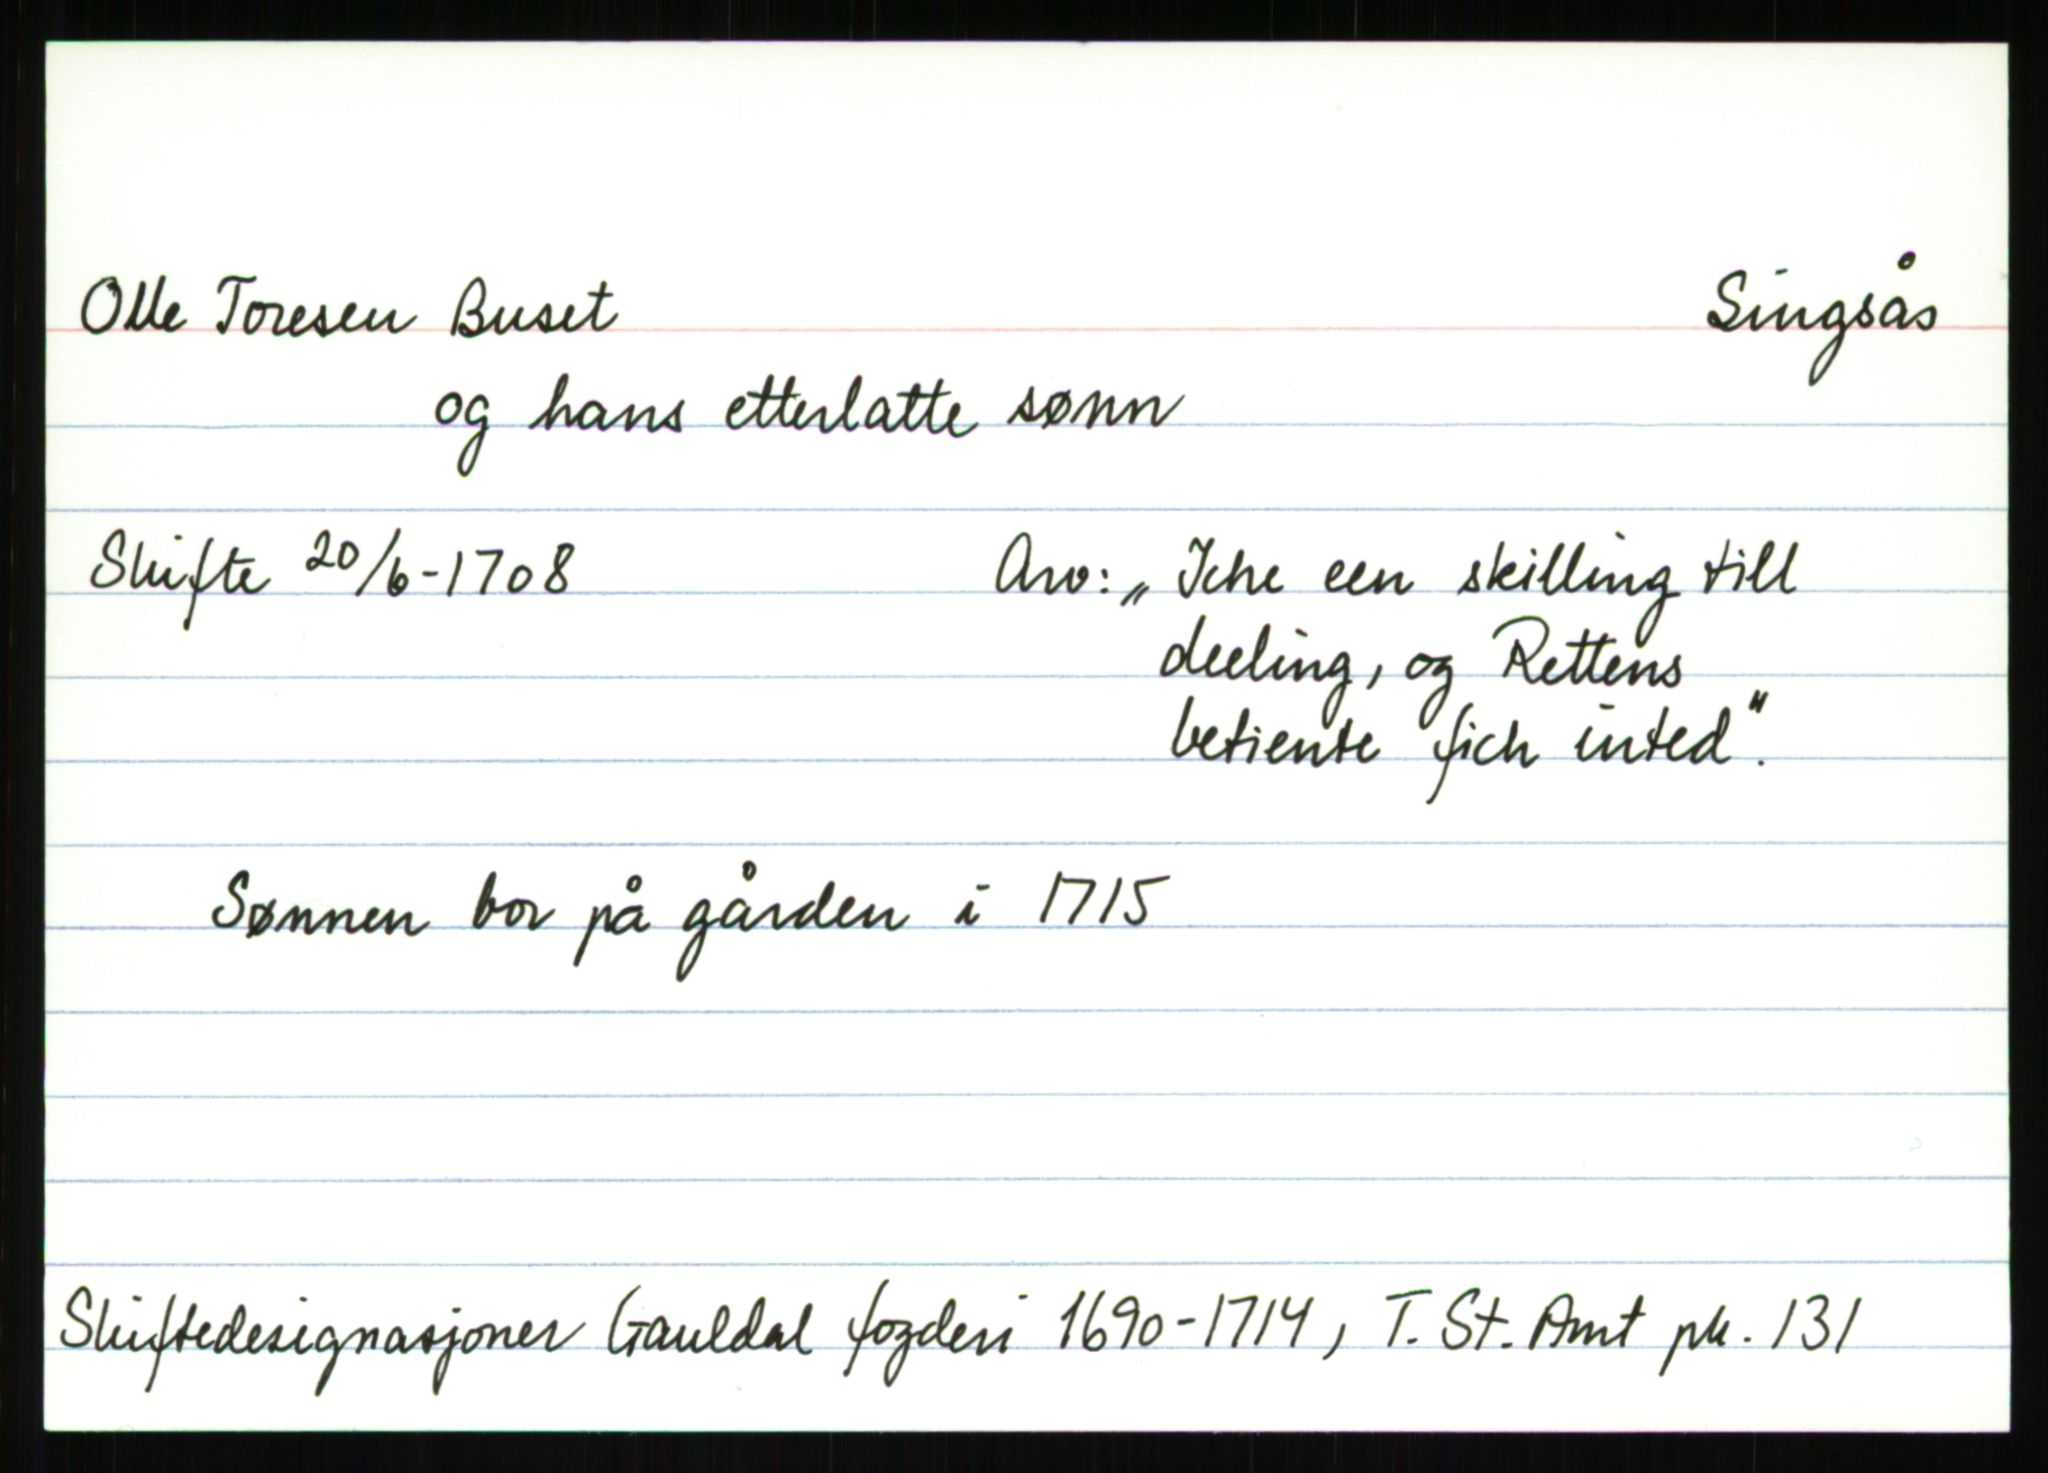 Olle Toresen Buset Singsås
og hans etterlatte sønn
Skifte 20/6-1708 Arv: „Icke een skilling till
deeling, og Rettens
betiente fick inted".
Sønnen bor på gården i 1715
Skiftedesignasjoner Gauldal fogderi 1690-1714, T. St. Amt pk. 131